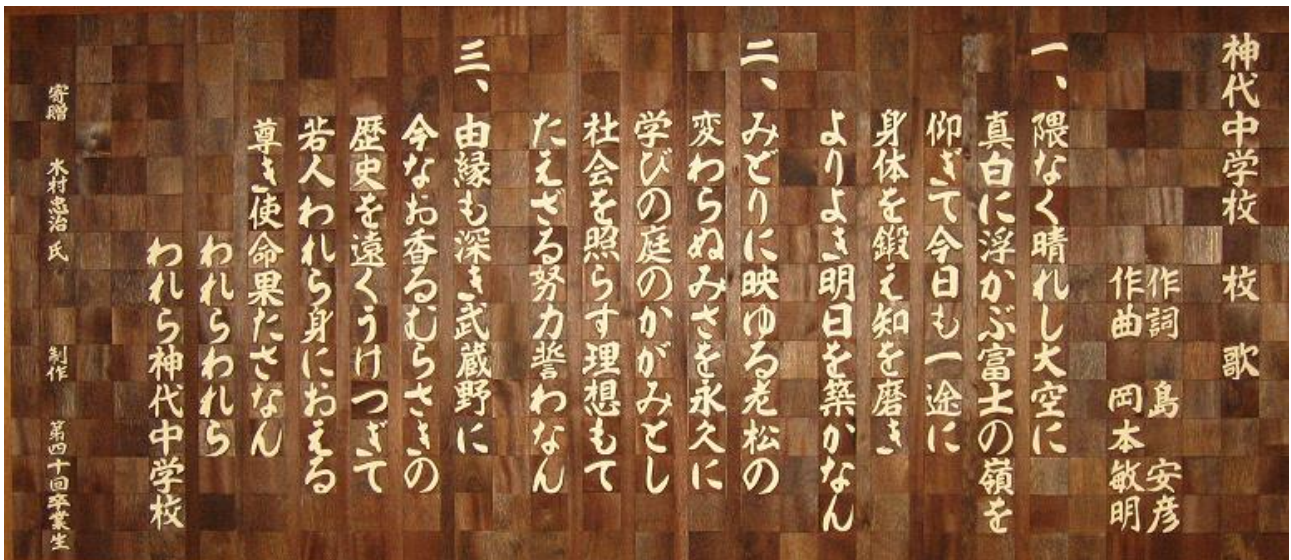 神代中学校 校歌
作詞 島 安彦
作曲 岡本敏明
一、隈なく晴れし大空に
真白に浮かぶ富士の嶺を
仰ぎて今日も一途に
身体を鍛え知を磨き
よりよき明日を築かなん
二、みどりに映ゆる老松の
変わらぬみさを永久に
学びの庭のかがみとし
社会を照らす理想もて
たえざる努力誓わなん
三、由縁も深き武蔵野に
今なお香るむらさきの
歴史を遠くうけつぎて
若人われら身におえる
尊き使命果たさなん
われらわれら
われら神代中学校
寄贈 木村忠治氏 制作 第四十回卒業生